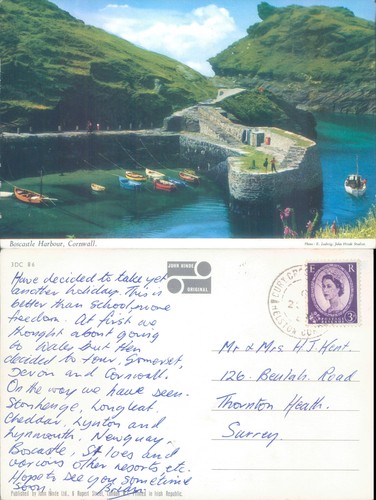 Boscastle Harbour, Cornwall.
Photo: E. Ludwig, John Hinde Studios
3DC 86
JOHN HINDE
ORIGINAL
Have decided to take yet
another holiday. This is
better than school, more
freedom. At first we
thought about going
to Wales but then
decided to tour, Somerset,
Devon and Cornwall.
On the way we have seen.
Stonhenge, Longleat,
Cheddar, Lynton and
Lynmouth, Newquay,
Boscastle, St Ives and
various other resorts, etc.
Hope to see you sometime
soon. Brian.
E R
3D
Mr & Mrs H.J. Kent.
126. Beulah Road
Thornton Heath.
Surrey.
Published by John Hinde Ltd., 6 Rupert Street, London, Printed in Irish Republic.